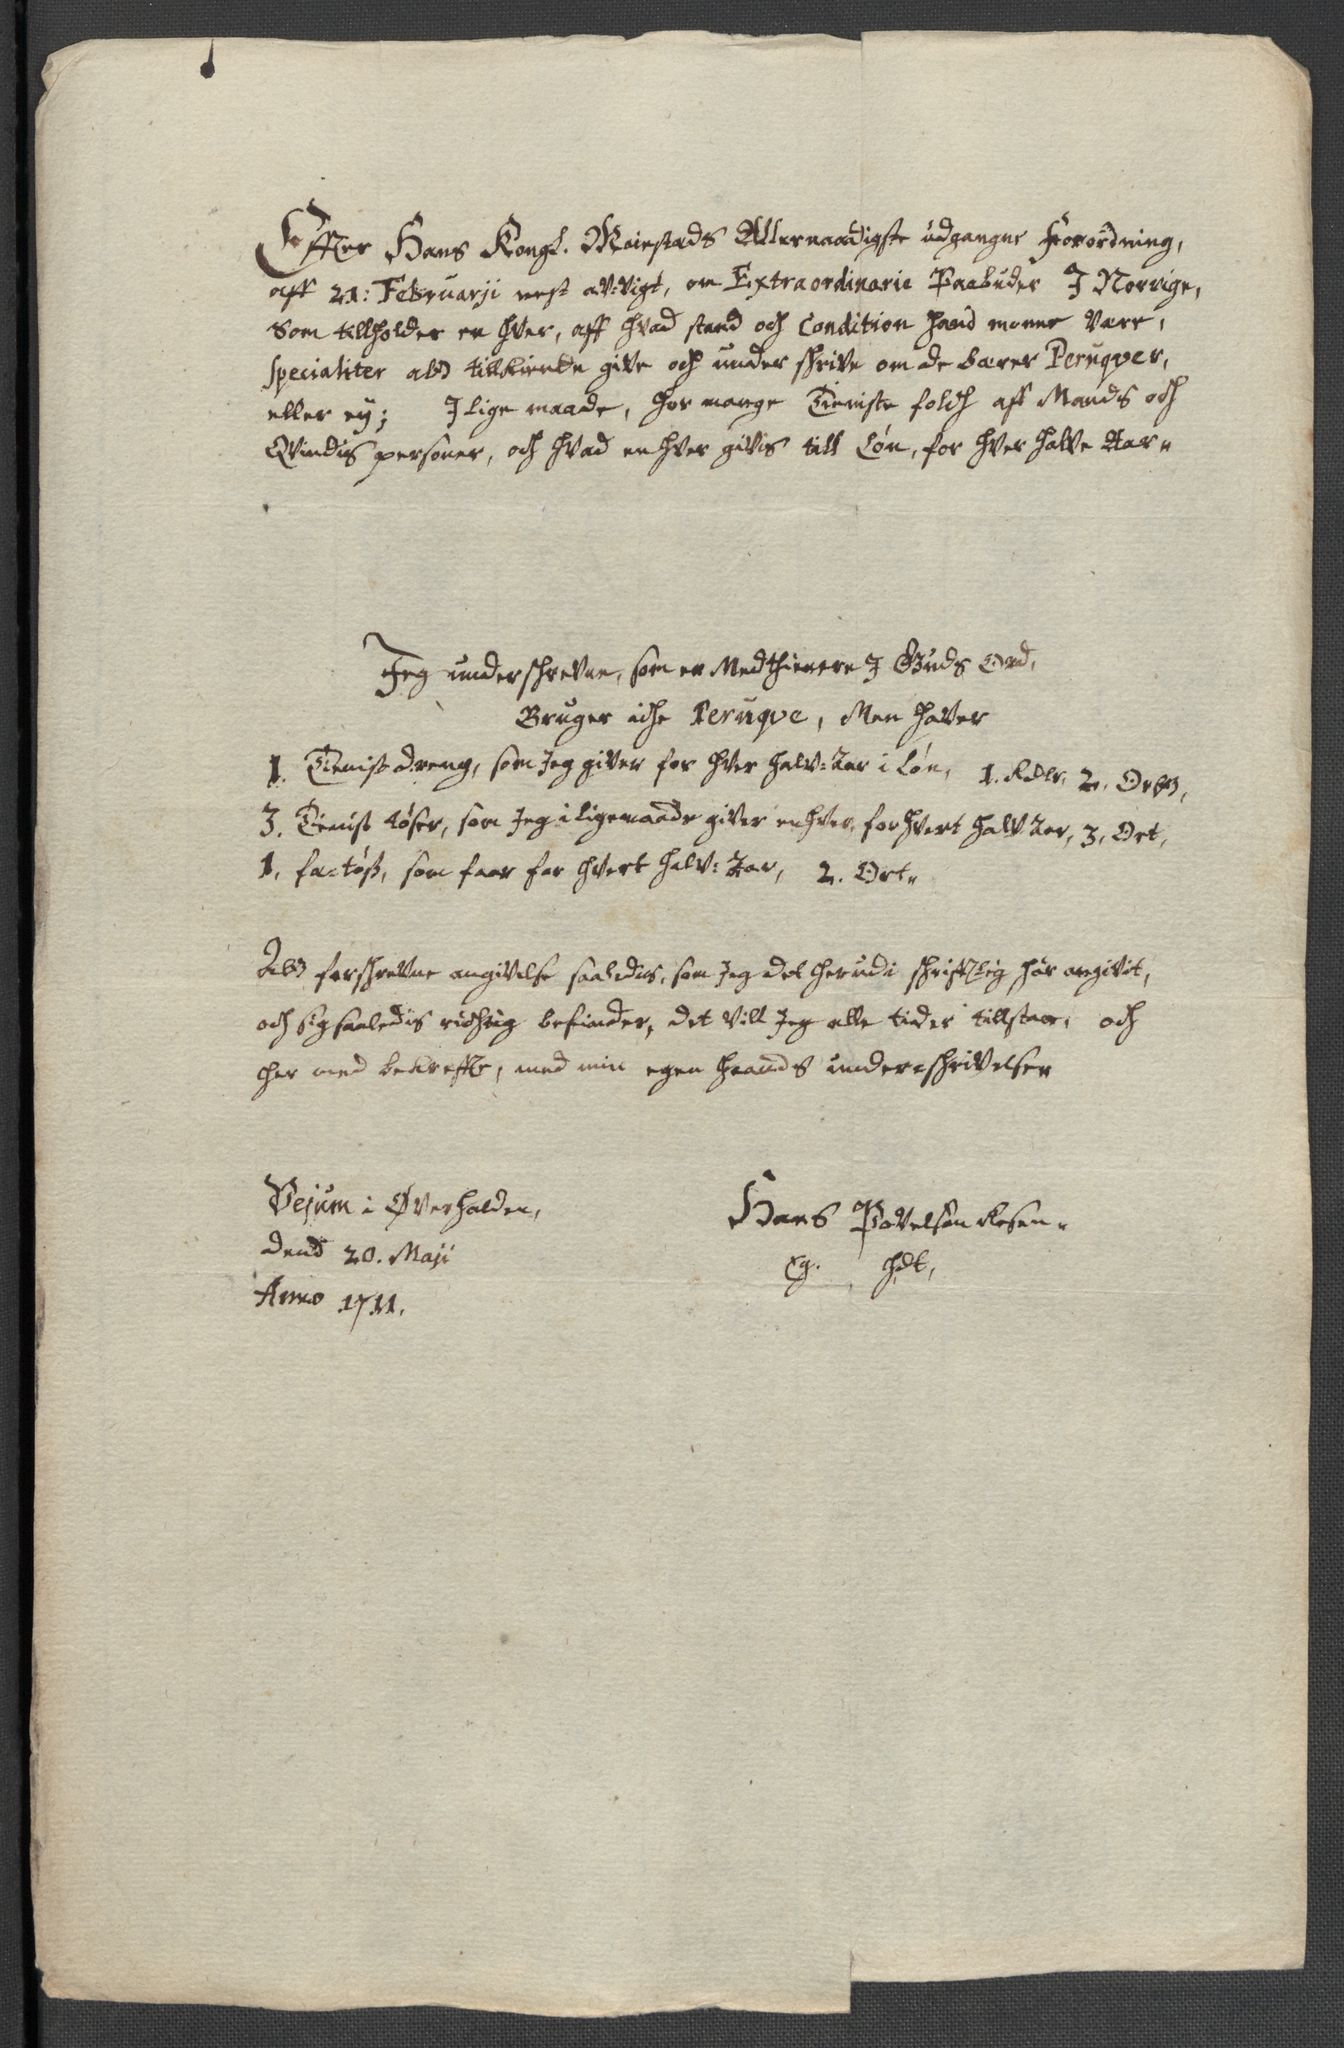 Effter Hans Kongl. Maiestads Allernaadigste udgangne Forordning,
aff 21: Februarji nest avvigt, om Extraordinarie Paabuder I Norrige,
Som tillholder en hver, aff hvad stand och Condition hand monne være,
specialiter att tillkiende give och under skrive om de bærer Peruqver,
eller ey; I lige maade, hor mange Tieniste folch aff Mands och
Qvindis personer, och hvad en hver givis till Løn, for hver halve Aar„
Jeg underschrevne, som er Medthienere I Guds Ord,
Bruger iche Peruqve, Men haver
1. Tienist dreng, som Jeg giver for hver halv: Aar i Løn, 1. Rdlr. 2. Ort,
3. Tienist tøser, som Jeg i ligemaade giver enhver, for hvert halv Aar, 3. Ort,
1. fæ=tøs, som faar for hvert halv: Aar, 2. Ort„
Att forschrevne angivelse saaledis, som Jeg det herudi schrifftlig har angivit,
och sig saaledis richtig befinder, det vill Jeg alle tider tillstaa, och
her med bekreffte, med min egen haands under=schrivelse„
Vejum i Øverhalden,
Dend 20. Maji
Anno 1711.
Hans Povelsøn Resen„
Eg. hdt,